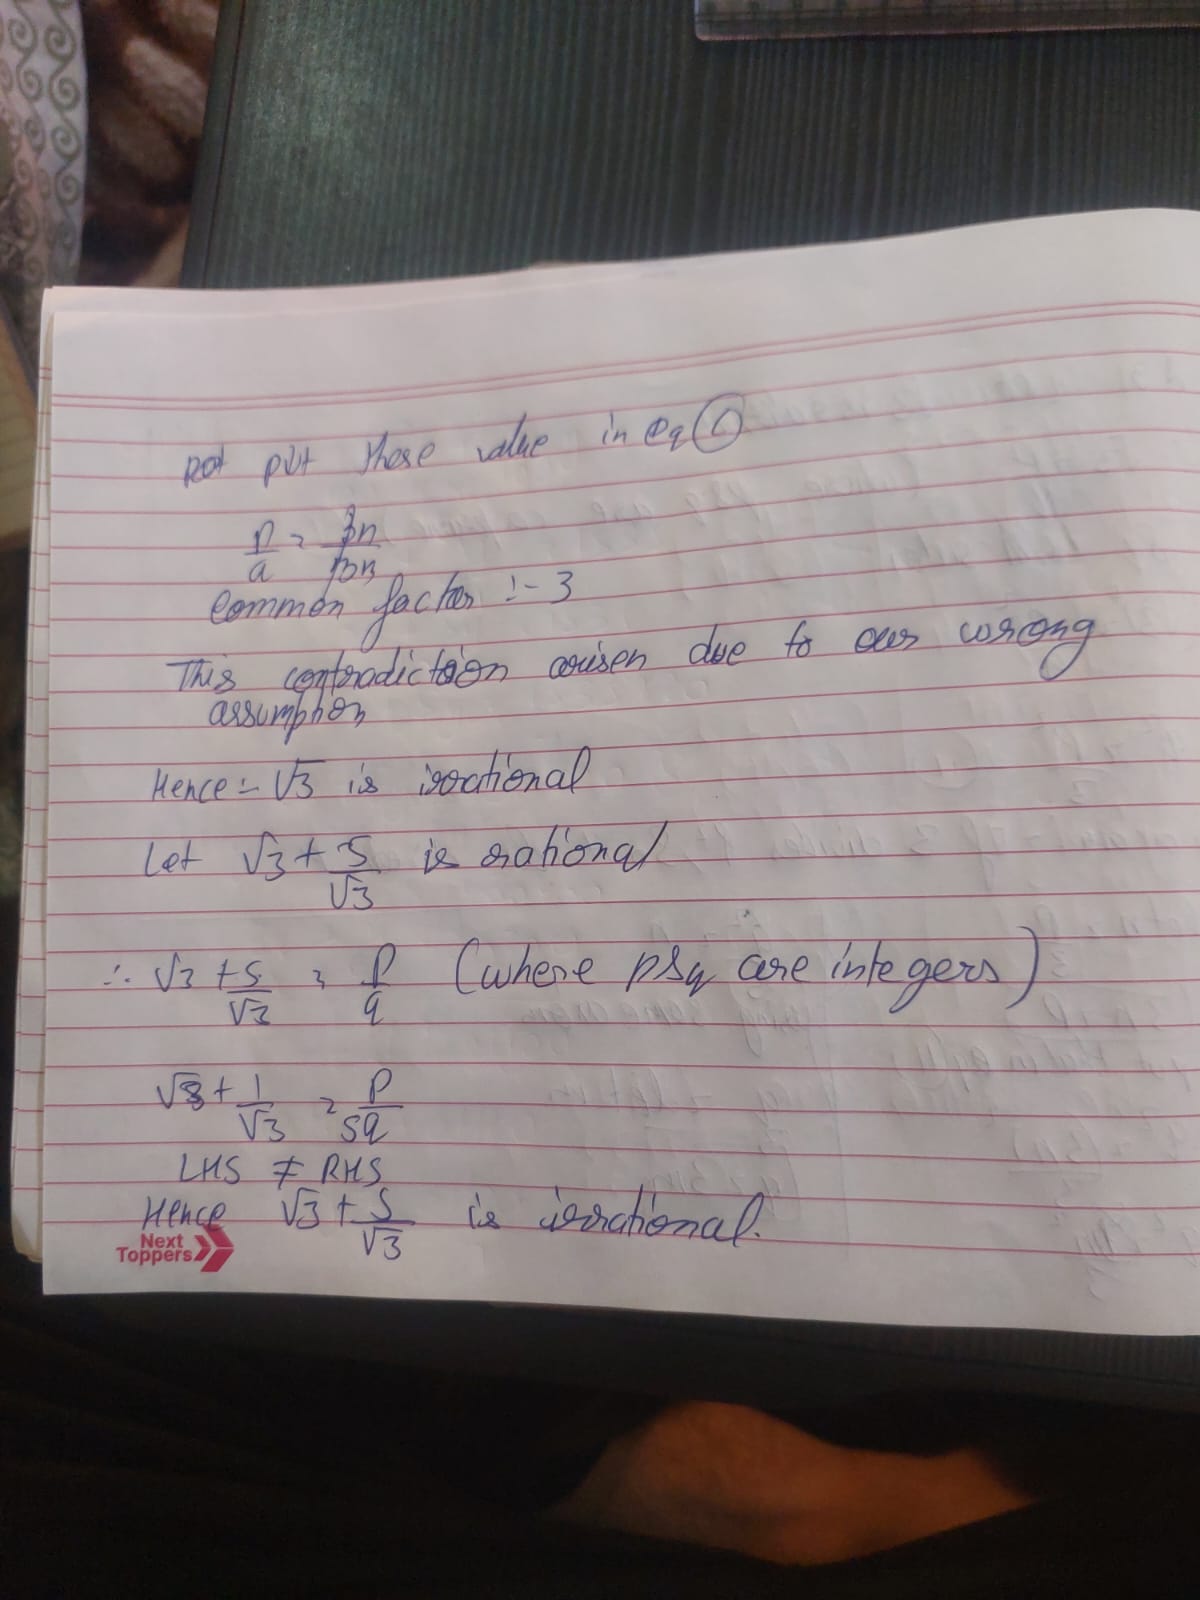 put these value in eq ①
p/q = 3n/3m
Common factor :- 3
This contradiction arisen due to our wrong
assumption
Hence :- √3 is irrational
Let √3 + 5/√3 is rational
∴ √3 + 5/√3 = p/q (where p & q are integers)
√3 + 1/√3 = p/5q
LHS ≠ RHS
Hence √3 + 5/√3 is irrational.
Next
Toppers